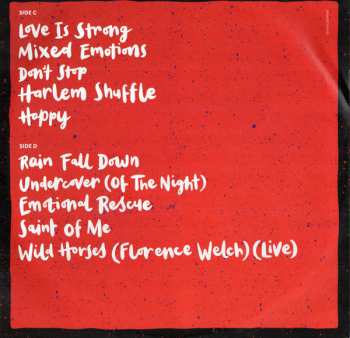 SIDE C
Love Is Strong
Mixed Emotions
Don't Stop
Harlem Shuffle
Happy
SIDE D
Rain Fall Down
Undercover (Of The Night)
Emotional Rescue
Saint Of Me
Wild Horses (Florence Welch) (Live)